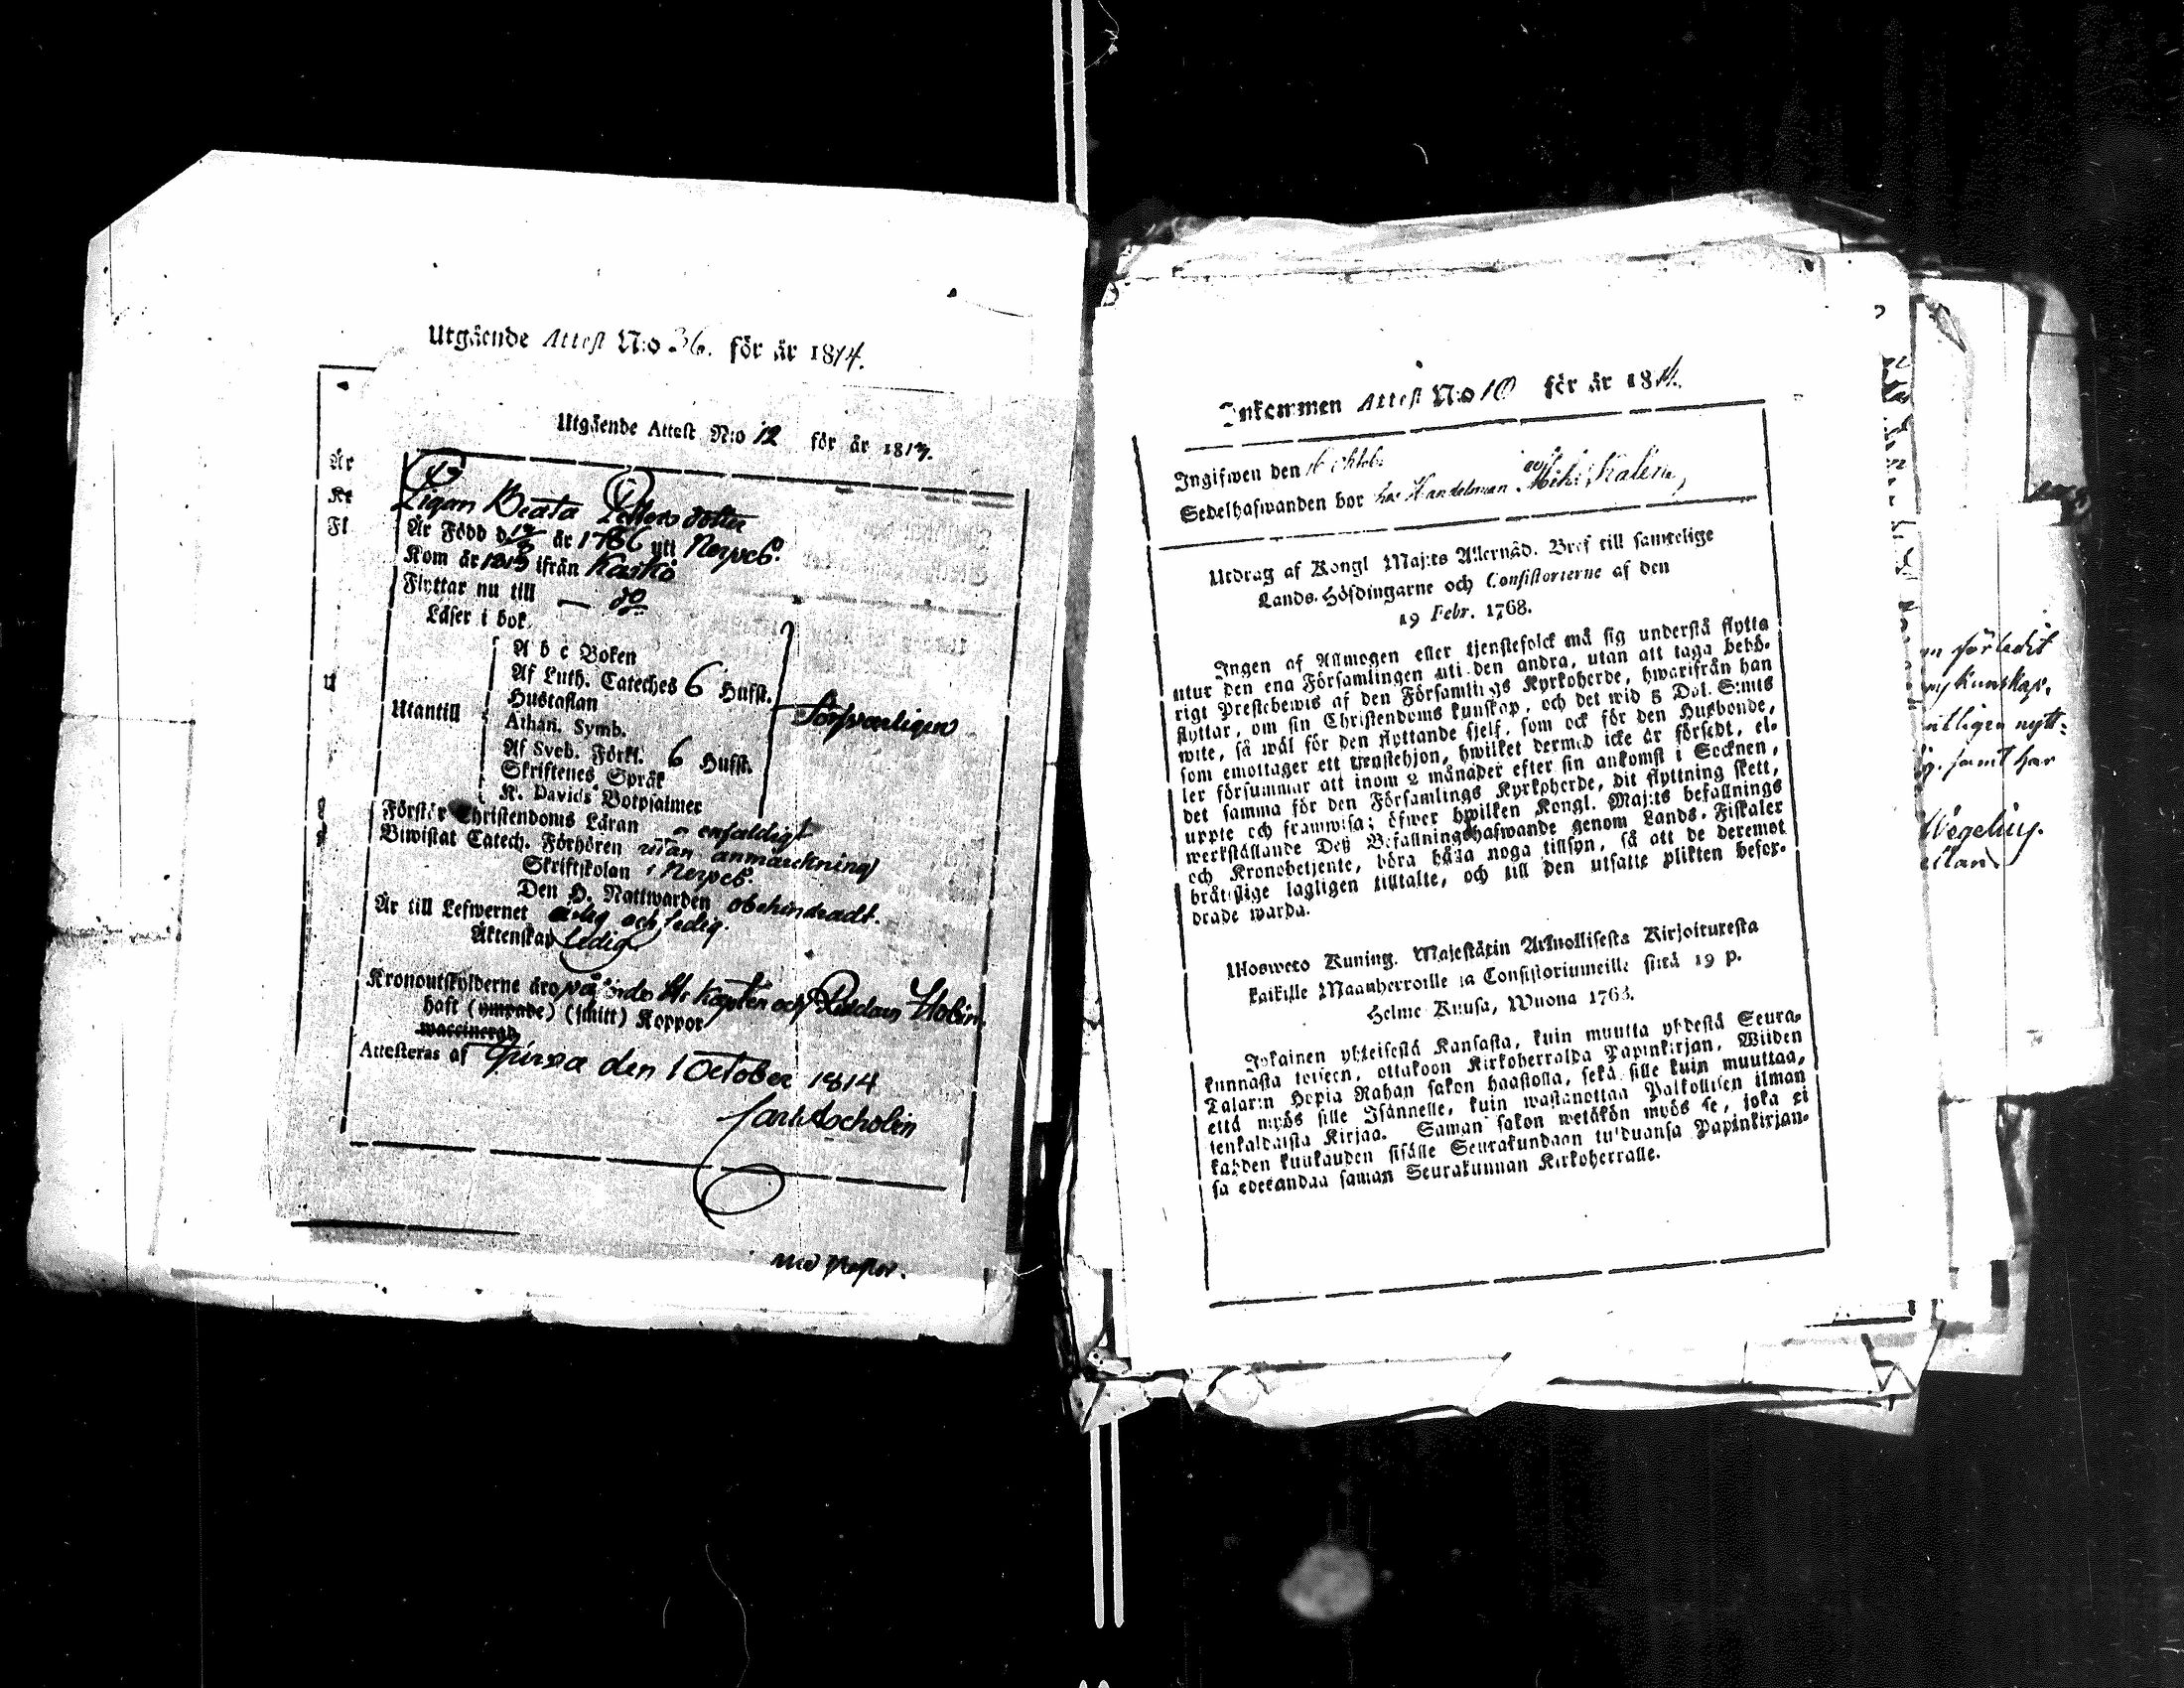 Utgående Attest N:o 36. för år 1814.
Utgående Attest N:o 12 för år 1814.
Är
Kr
Fl
U
Pigan Beata Petters dotter
Är Född d 12/8 år 1786 uti Nerpes.
Kom år 1813 ifrån Kaskö
Flyttar nu till — do
Läser i bok.
Utantill
A b c Boken
Af Luth. Cateches 6 Hufst.
Hustaflan
Athan. Symb.
Af Sveb. Förkl. 6 Hufst.
Skriftenes Språk
K. Davids Botpsalmer
Försvarligen
Förstår Christendoms Läran enfaldigt
Biwistat Catech. Förhören utan anmärckning
Skriftskolan i Nerpes.
Den H. Nattwarden obehindradt.
Är till Lefwernet ärlig och sedig.
Äktenskap ledig
Kronoutskylderne äro Kapten och Riddarn
haft (ympade) (smitt) Koppor
waccinerad
Attesteras af den 1 October 1814
Carl Ascholin
Inkommen Attest N:o 10 för år 1814.
Ingifwen den Oktob.
Sedelhafwanden bor hos Handelsman
Utdrag af Kongl Maj:ts Allernåd. Bref till samtelige
Lands-Höfdingarne och Consistorierne af den
19 Febr. 1768.
Ingen af Allmogen eller tjenstefolck må sig understå flytta
utur den ena Församlingen uti den andra, utan att taga behö-
rigt Prestebewis af den Församlings Kyrkoherde, hwarifrån han
flyttar, om sin Christendoms kunskap, och det wid 5 Dal. S:mts
wite, så wäl för den flyttande sjelf, som ock för den Husbonde,
som emottager ett tjenstehjon, hwilket dermed icke är försedt, el-
ler försummar att inom 2 månader efter sin ankomst i Socknen,
det samma för den Församlings Kyrkoherde, dit flyttning skett,
uppte och framwisa; öfwer hwilken Kongl. Maj:ts befallnings
werkställande Deß Befallningshafwande genom Lands-Fiskaler
och Kronobetjente, böra hålla noga tillsyn, så att de deremot
brottslige lagligen tilltalte, och till den utsatte plikten befor-
drade warda.
Ulosweto Kuning. Majestätin Armollisesta Kirjoituxesta
kaikille Maanherroille ja Consistoriumeille siitä 19 p.
Helme Kuusa, Wuona 1768.
Jokainen yhteisestä Kansasta, kuin muutta yhdestä Seura-
kunnasta toiseen, ottakoon Kirkoherralda Papinkirjan, Wiiden
Talarin Hopia Rahan sakon haastolla, sekä sille kuin muuttaa,
että myös sille Isännelle, kuin wastanottaa Palkollisen ilman
senkaldaista Kirjaa. Saman sakon wetäkön myös se, joka ei
kahden kuukauden sisälle Seurakundaan tulduansa Papinkirjan-
sa edesandaa saman Seurakunnan Kirkoherralle.
förledit
kunskap,
nytt-
samt har
Wegelius.